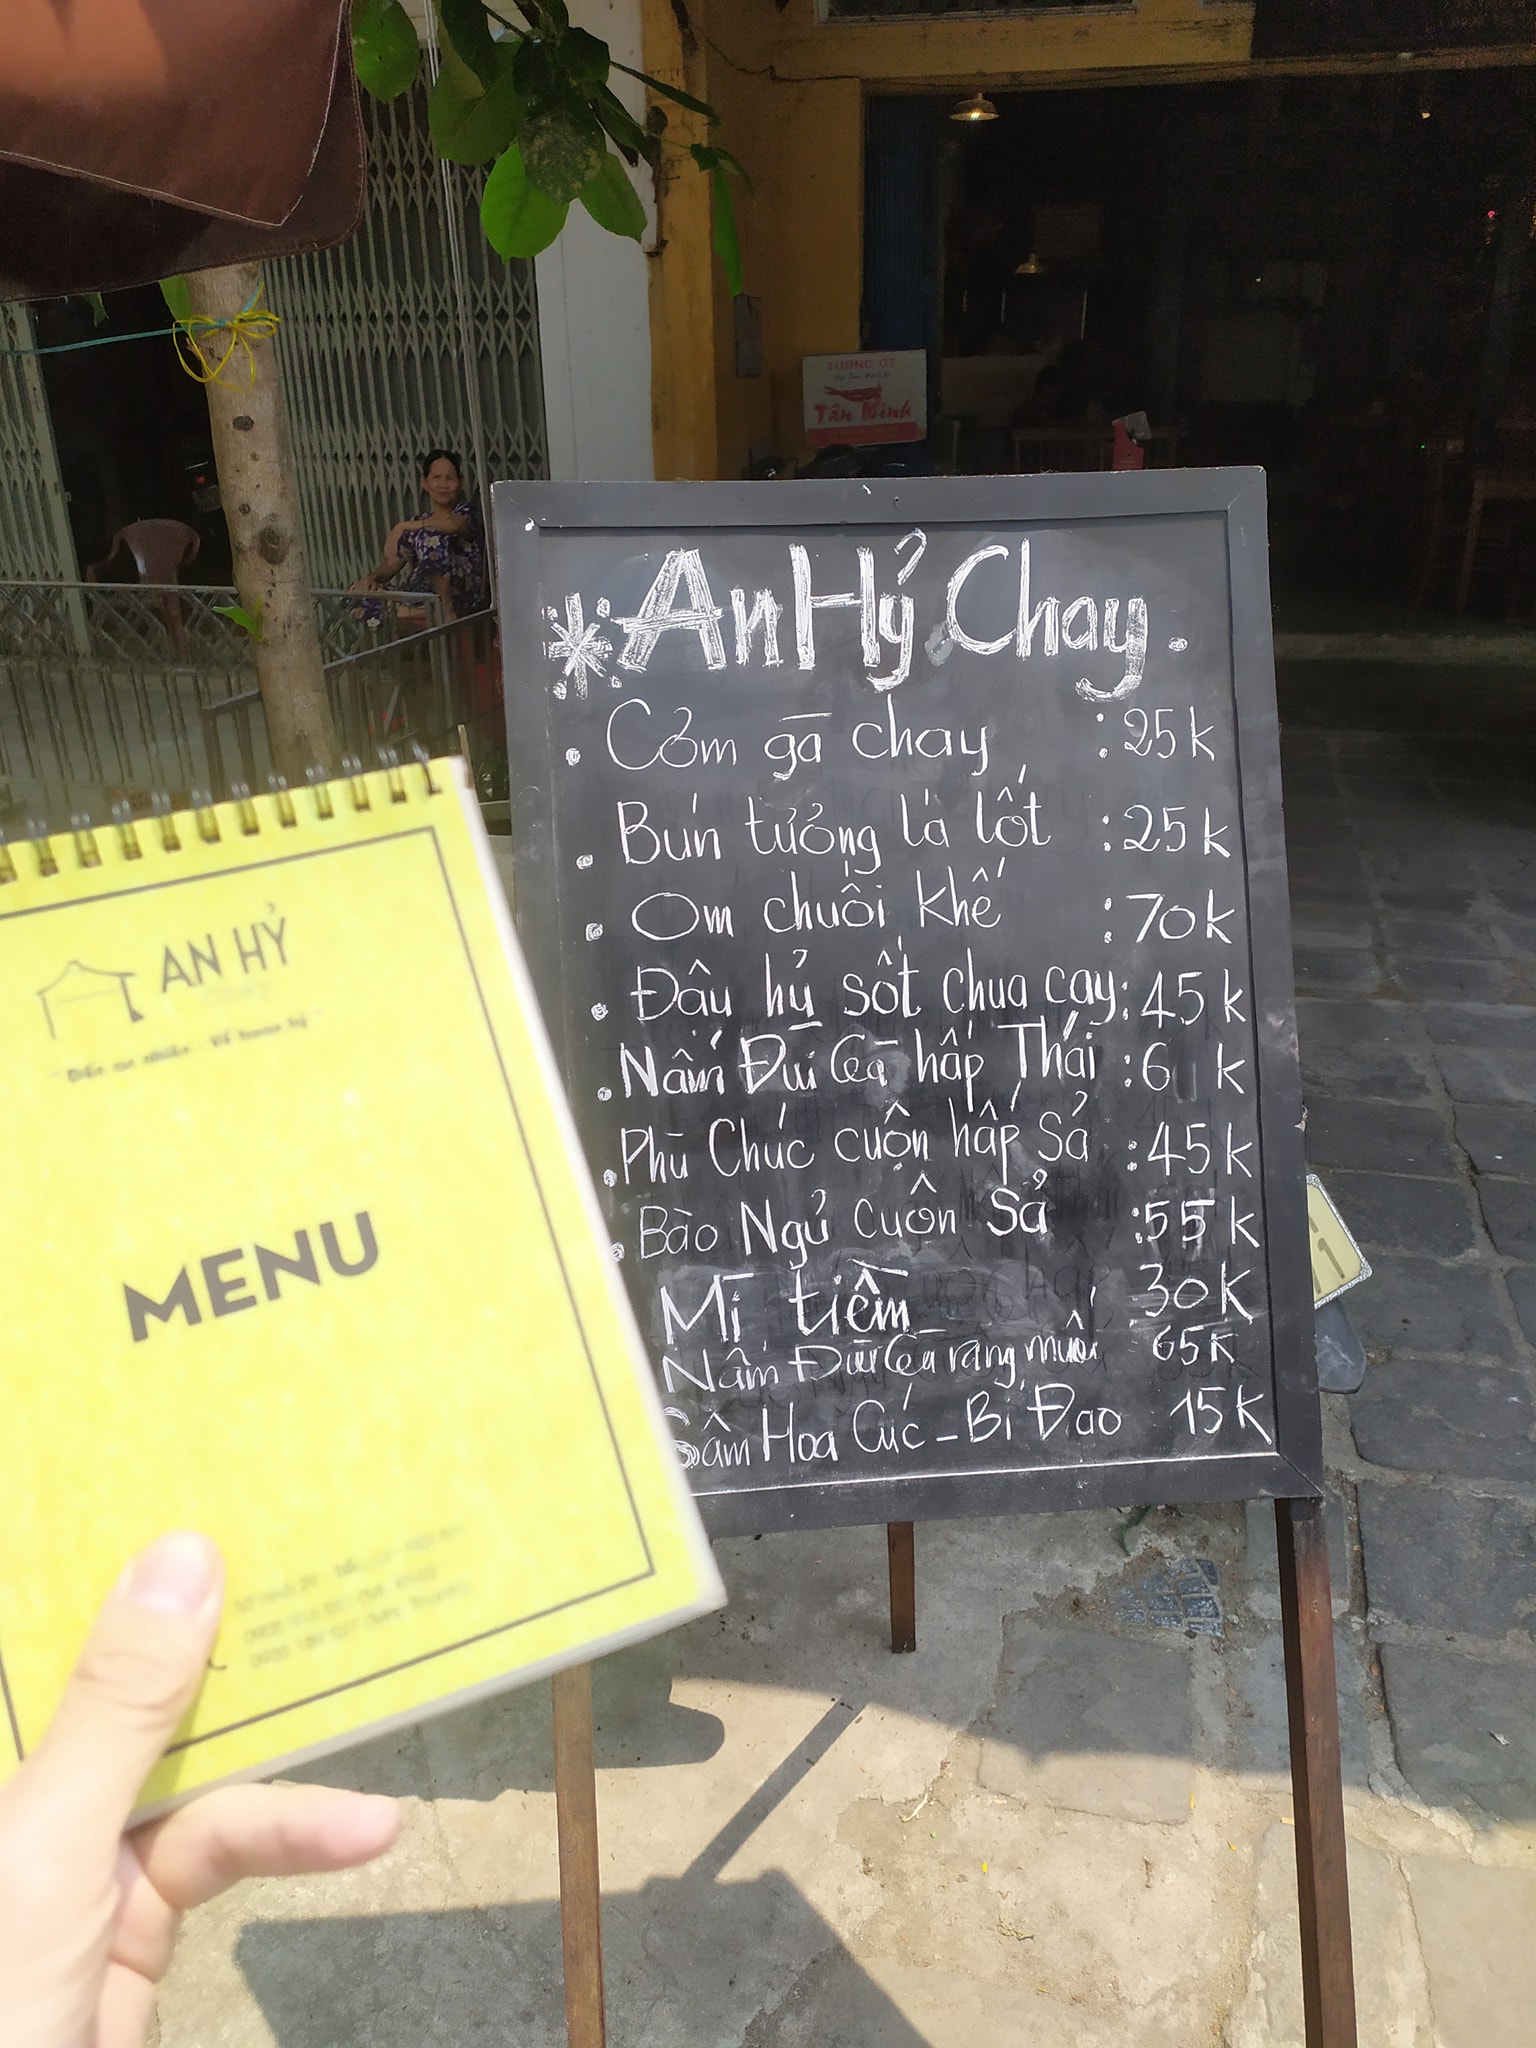 TƯƠNG ỚT
Tân Ninh
An Hỷ Chay.
Cơm gà chay : 25k
Bún tưởng lá lốt : 25k
Om chuối khế : 70k
Đậu hủ sốt chua cay: 45k
Nấm Đùi Gà hấp Thái : 6 k
Phù Chúc cuộn hấp Sả : 45k
Bào Ngư cuộn Sả : 55k
Mì tiềm 30K
Nấm Đùi Gà rang muối 65K
Sâm Hoa Cúc - Bí Đao 15K
AN HỶ
MENU